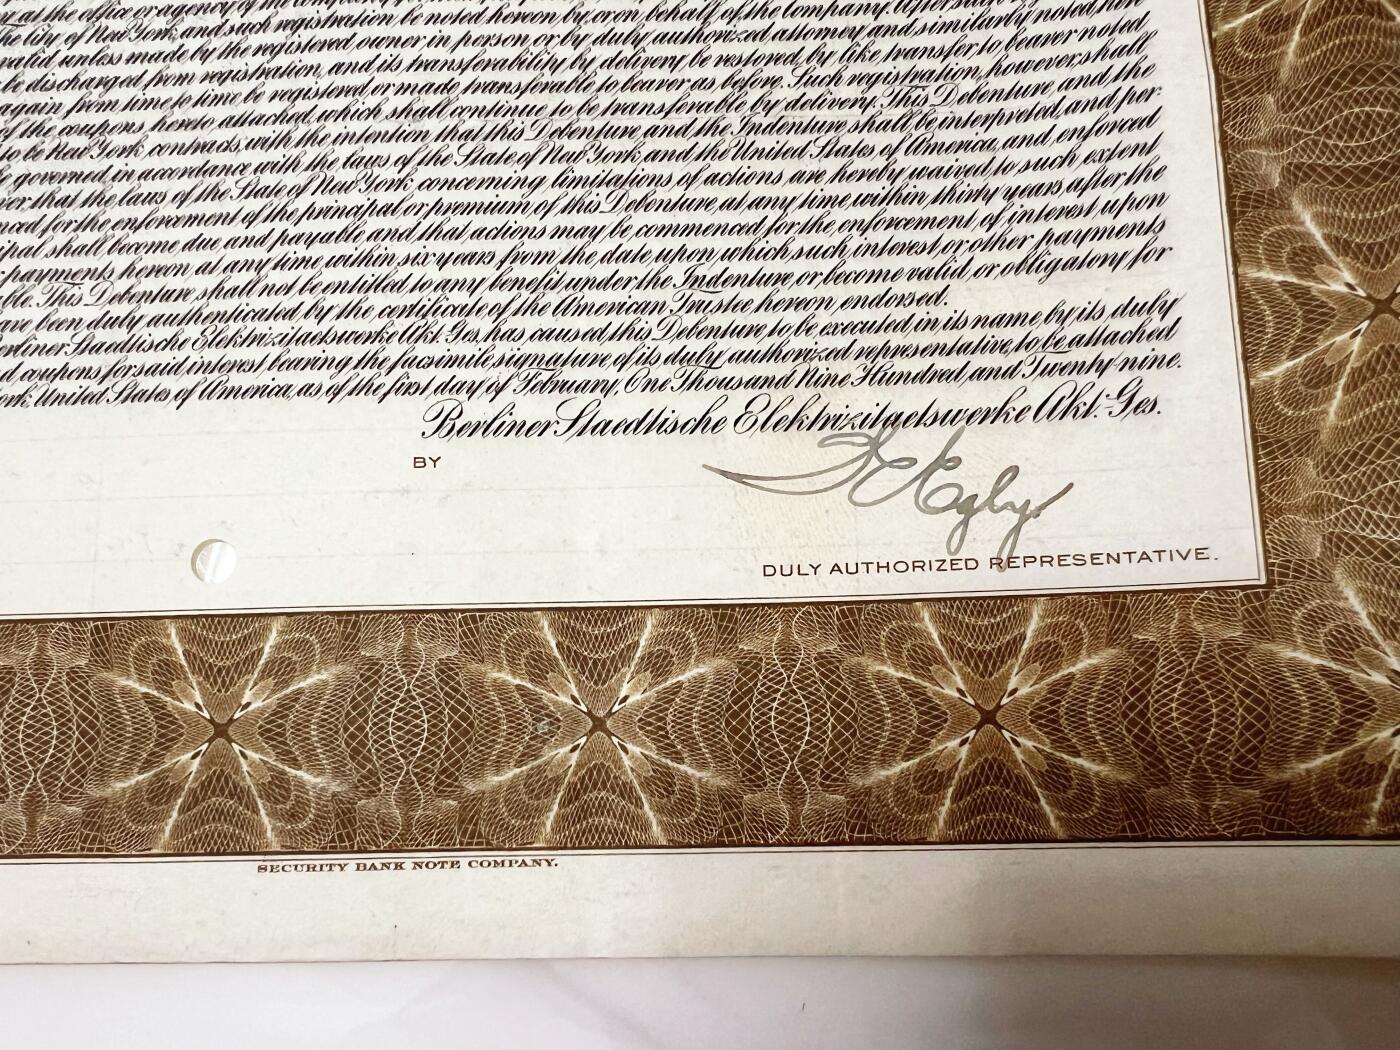 at the office or agency of the Company
the City of New York, and such registration be noted hereon by, or on behalf of, the Company. After such
valid unless made by the registered owner in person or by duly authorized attorney and similarly noted here
be discharged from registration, and its transferability by delivery be restored, by like transfer to bearer noted
again from time to time be registered or made transferable to bearer as before. Such registration, however, shall
of the coupons hereto attached, which shall continue to be transferable by delivery. This Debenture and the
to be New York contracts, with the intention that this Debenture and the Indenture shall be interpreted, and per
be governed in accordance with the laws of the State of New York and the United States of America, and enforced
er that the laws of the State of New York concerning limitations of actions are hereby waived to such extent
nced for the enforcement of the principal or premium of this Debenture at any time within thirty years after the
ipal shall become due and payable and that actions may be commenced for the enforcement of interest upon
r payments hereon at any time within six years from the date upon which such interest or other payments
ble. This Debenture shall not be entitled to any benefit under the Indenture or become valid or obligatory for
ave been duly authenticated by the certificate of the American Trustee hereon endorsed.
erliner Staedtische Elektrizitaetswerke Akt.-Ges. has caused this Debenture to be executed in its name by its duly
d coupons for said interest bearing the facsimile signature of its duly authorized representative, to be attached
ork, United States of America, as of the first day of February, One Thousand Nine Hundred and Twenty-nine.
Berliner Staedtische Elektrizitaetswerke Akt.-Ges.
BY
Egly
DULY AUTHORIZED REPRESENTATIVE.
SECURITY BANK NOTE COMPANY.